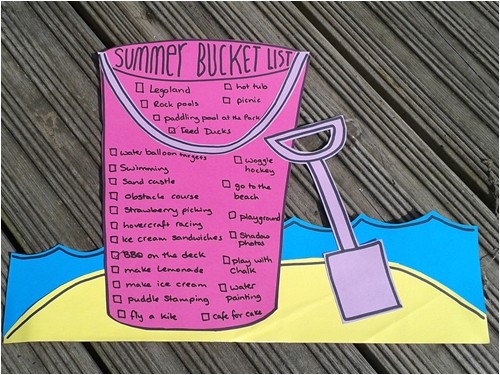 SUMMER BUCKET LIST
Legoland
hot tub
Rock pools
picnic
paddling pool at the Park
Feed Ducks
water balloon targets
Woggle
hockey
Swimming
Sand castle
go to the
beach
Obstacle course
Strawberry picking
playground
hovercraft racing
Ice cream sandwiches
Shadow
photos
BBQ on the deck
play with
Chalk
make Lemonade
make ice cream
water
painting
puddle Stamping
fly a kite
cafe for cake